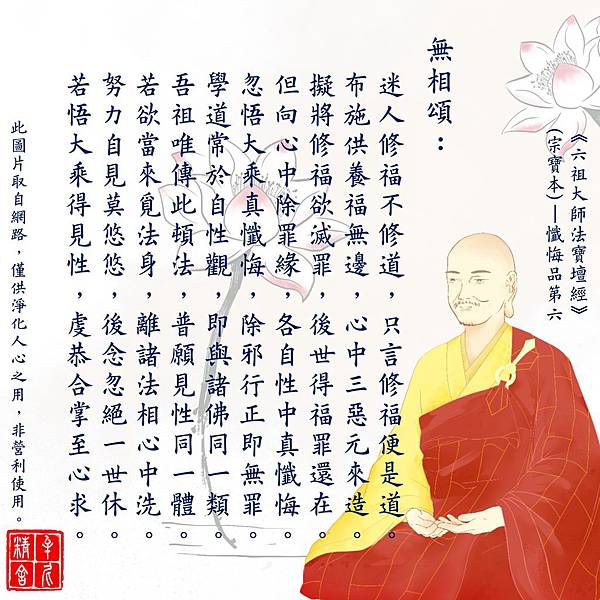 《六祖大師法寶壇經》
(宗寶本)—懺悔品第六
無相頌：
迷人修福不修道，只言修福便是道。
布施供養福無邊，心中三惡元來造。
擬將修福欲滅罪，後世得福罪還在。
但向心中除罪緣，各自性中真懺悔。
忽悟大乘真懺悔，除邪行正即無罪。
學道常於自性觀，即與諸佛同一類。
吾祖唯傳此頓法，普願見性同一體。
若欲當來覓法身，離諸法相心中洗。
努力自見莫悠悠，後念忽絕一世休。
若悟大乘得見性，虔恭合掌至心求。
此圖片取自網路，僅供淨化人心之用，非營利使用。
精舍